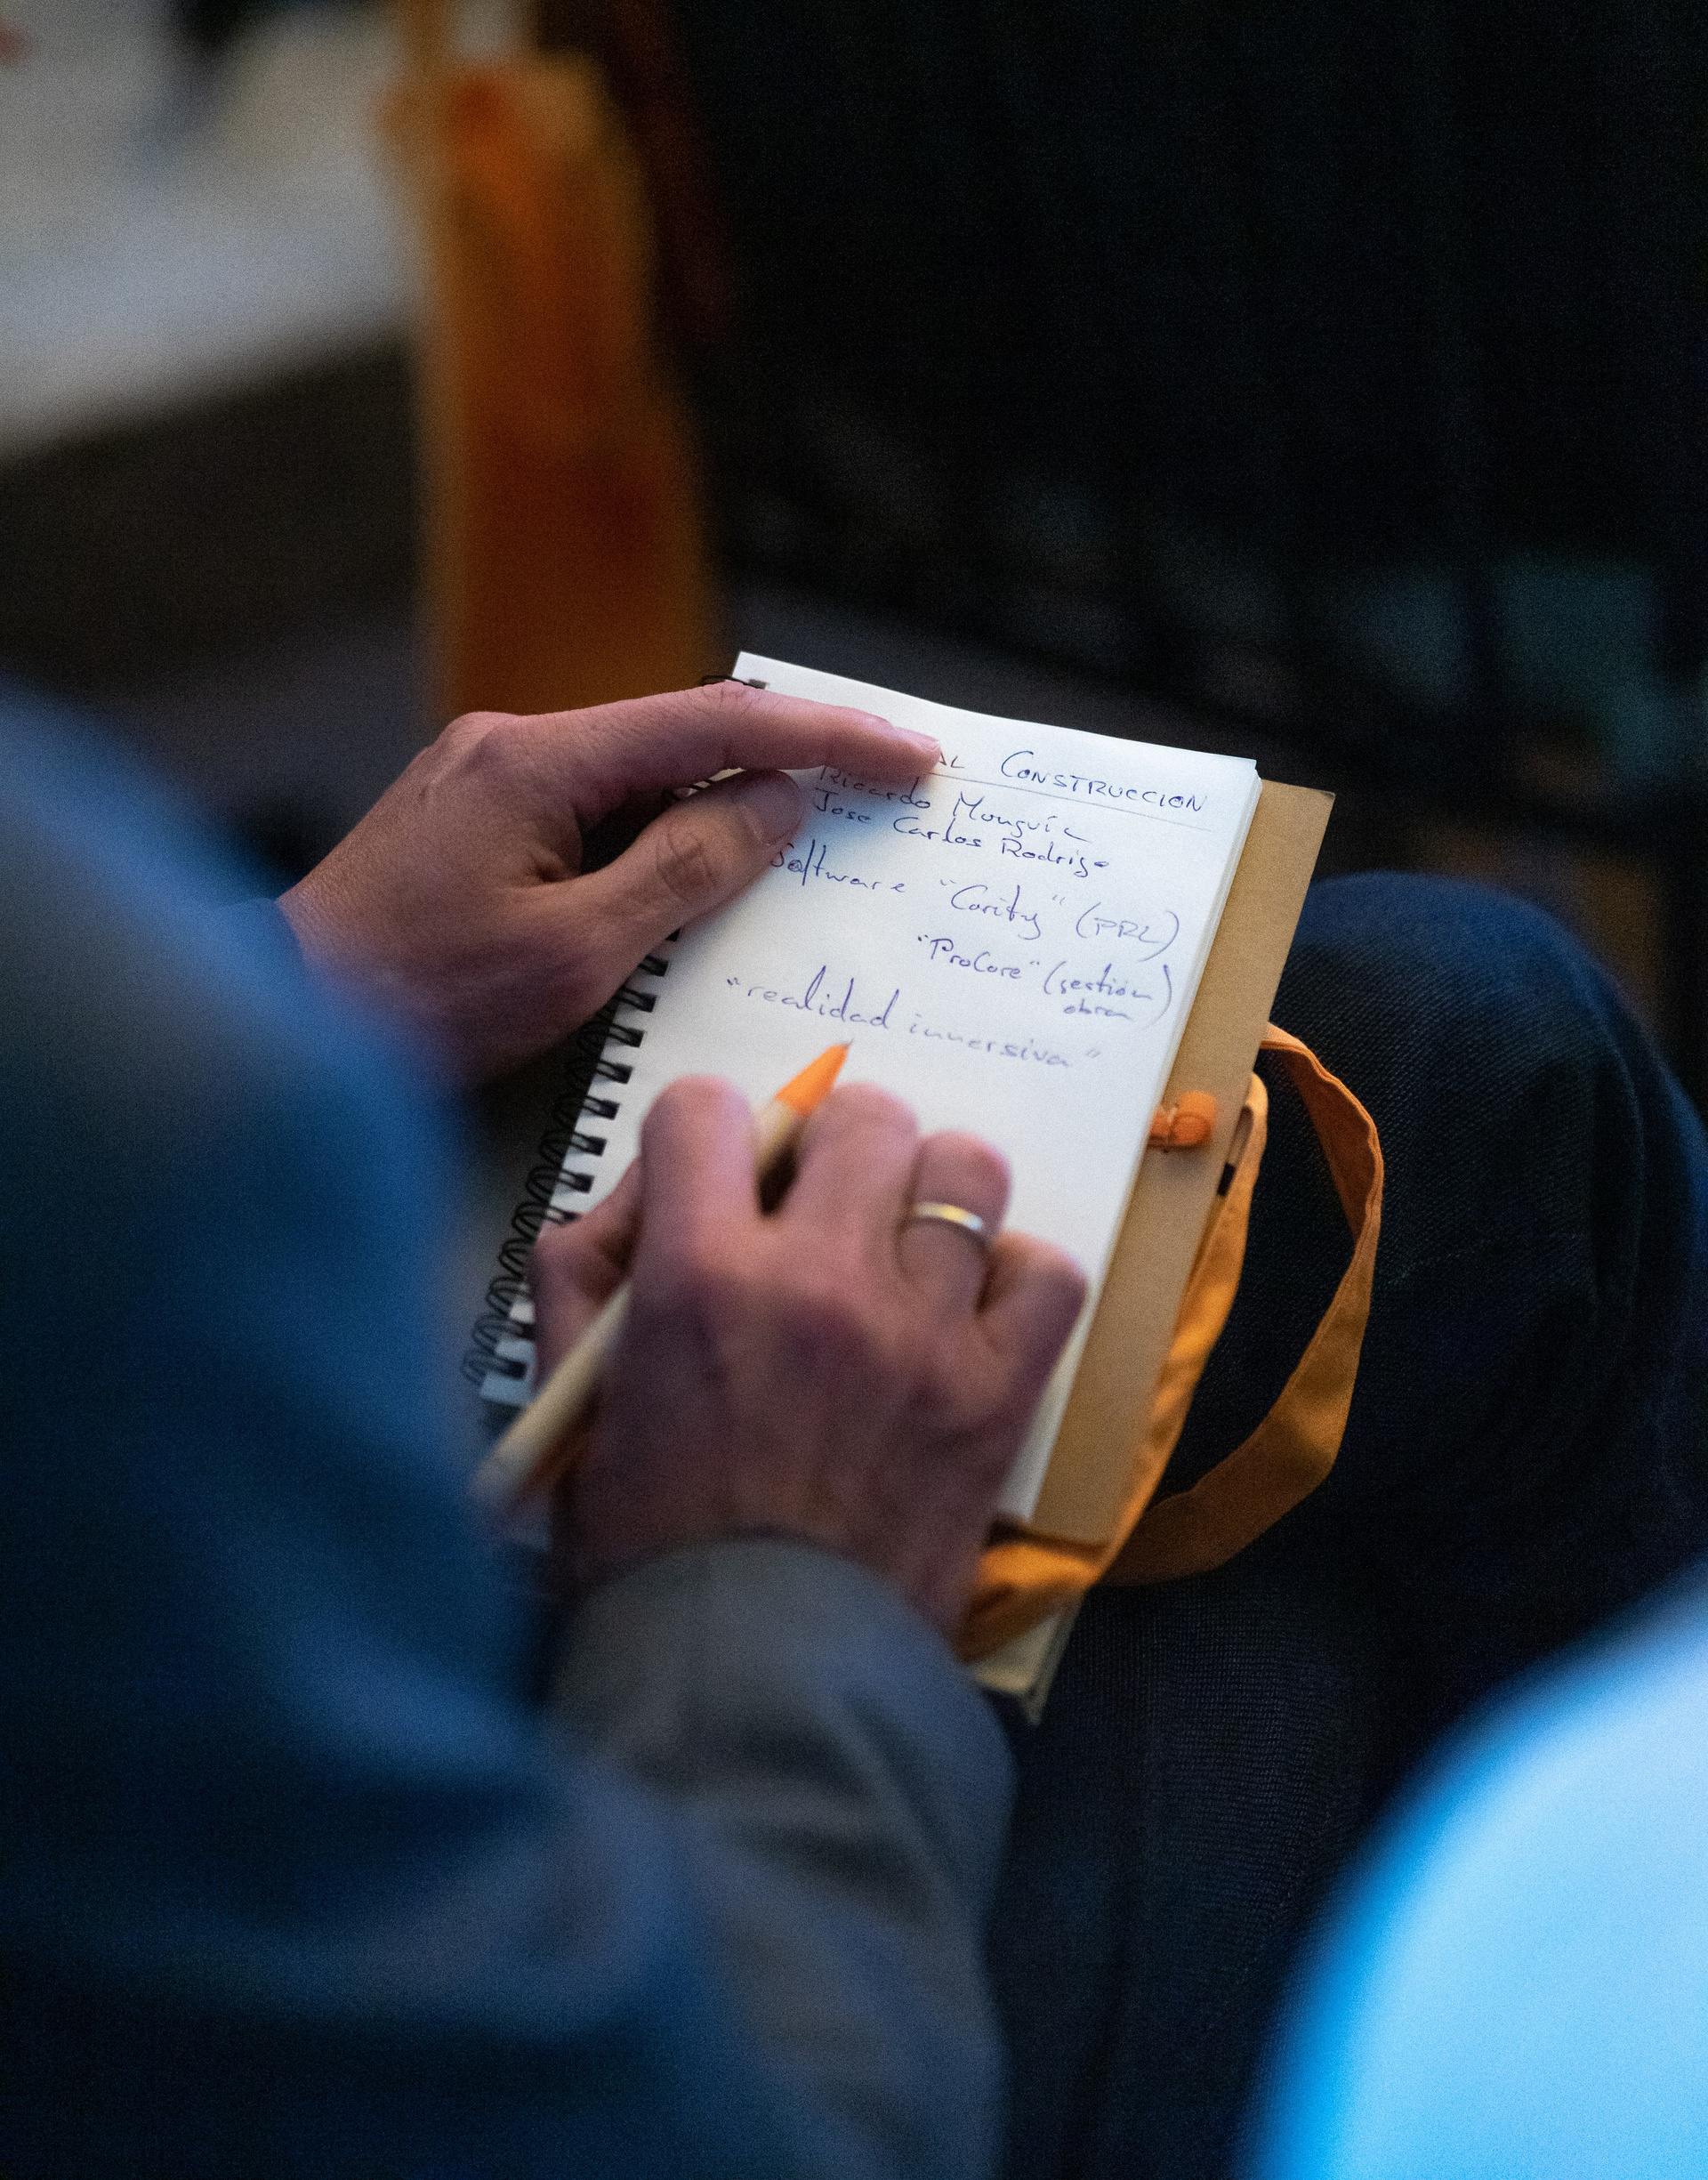 AL CONSTRUCCION
Ricardo Munguía
Jose Carlos Rodrigo
Software "Cority" (PRL)
"ProCore" (gestión
obra)
"realidad inmersiva"